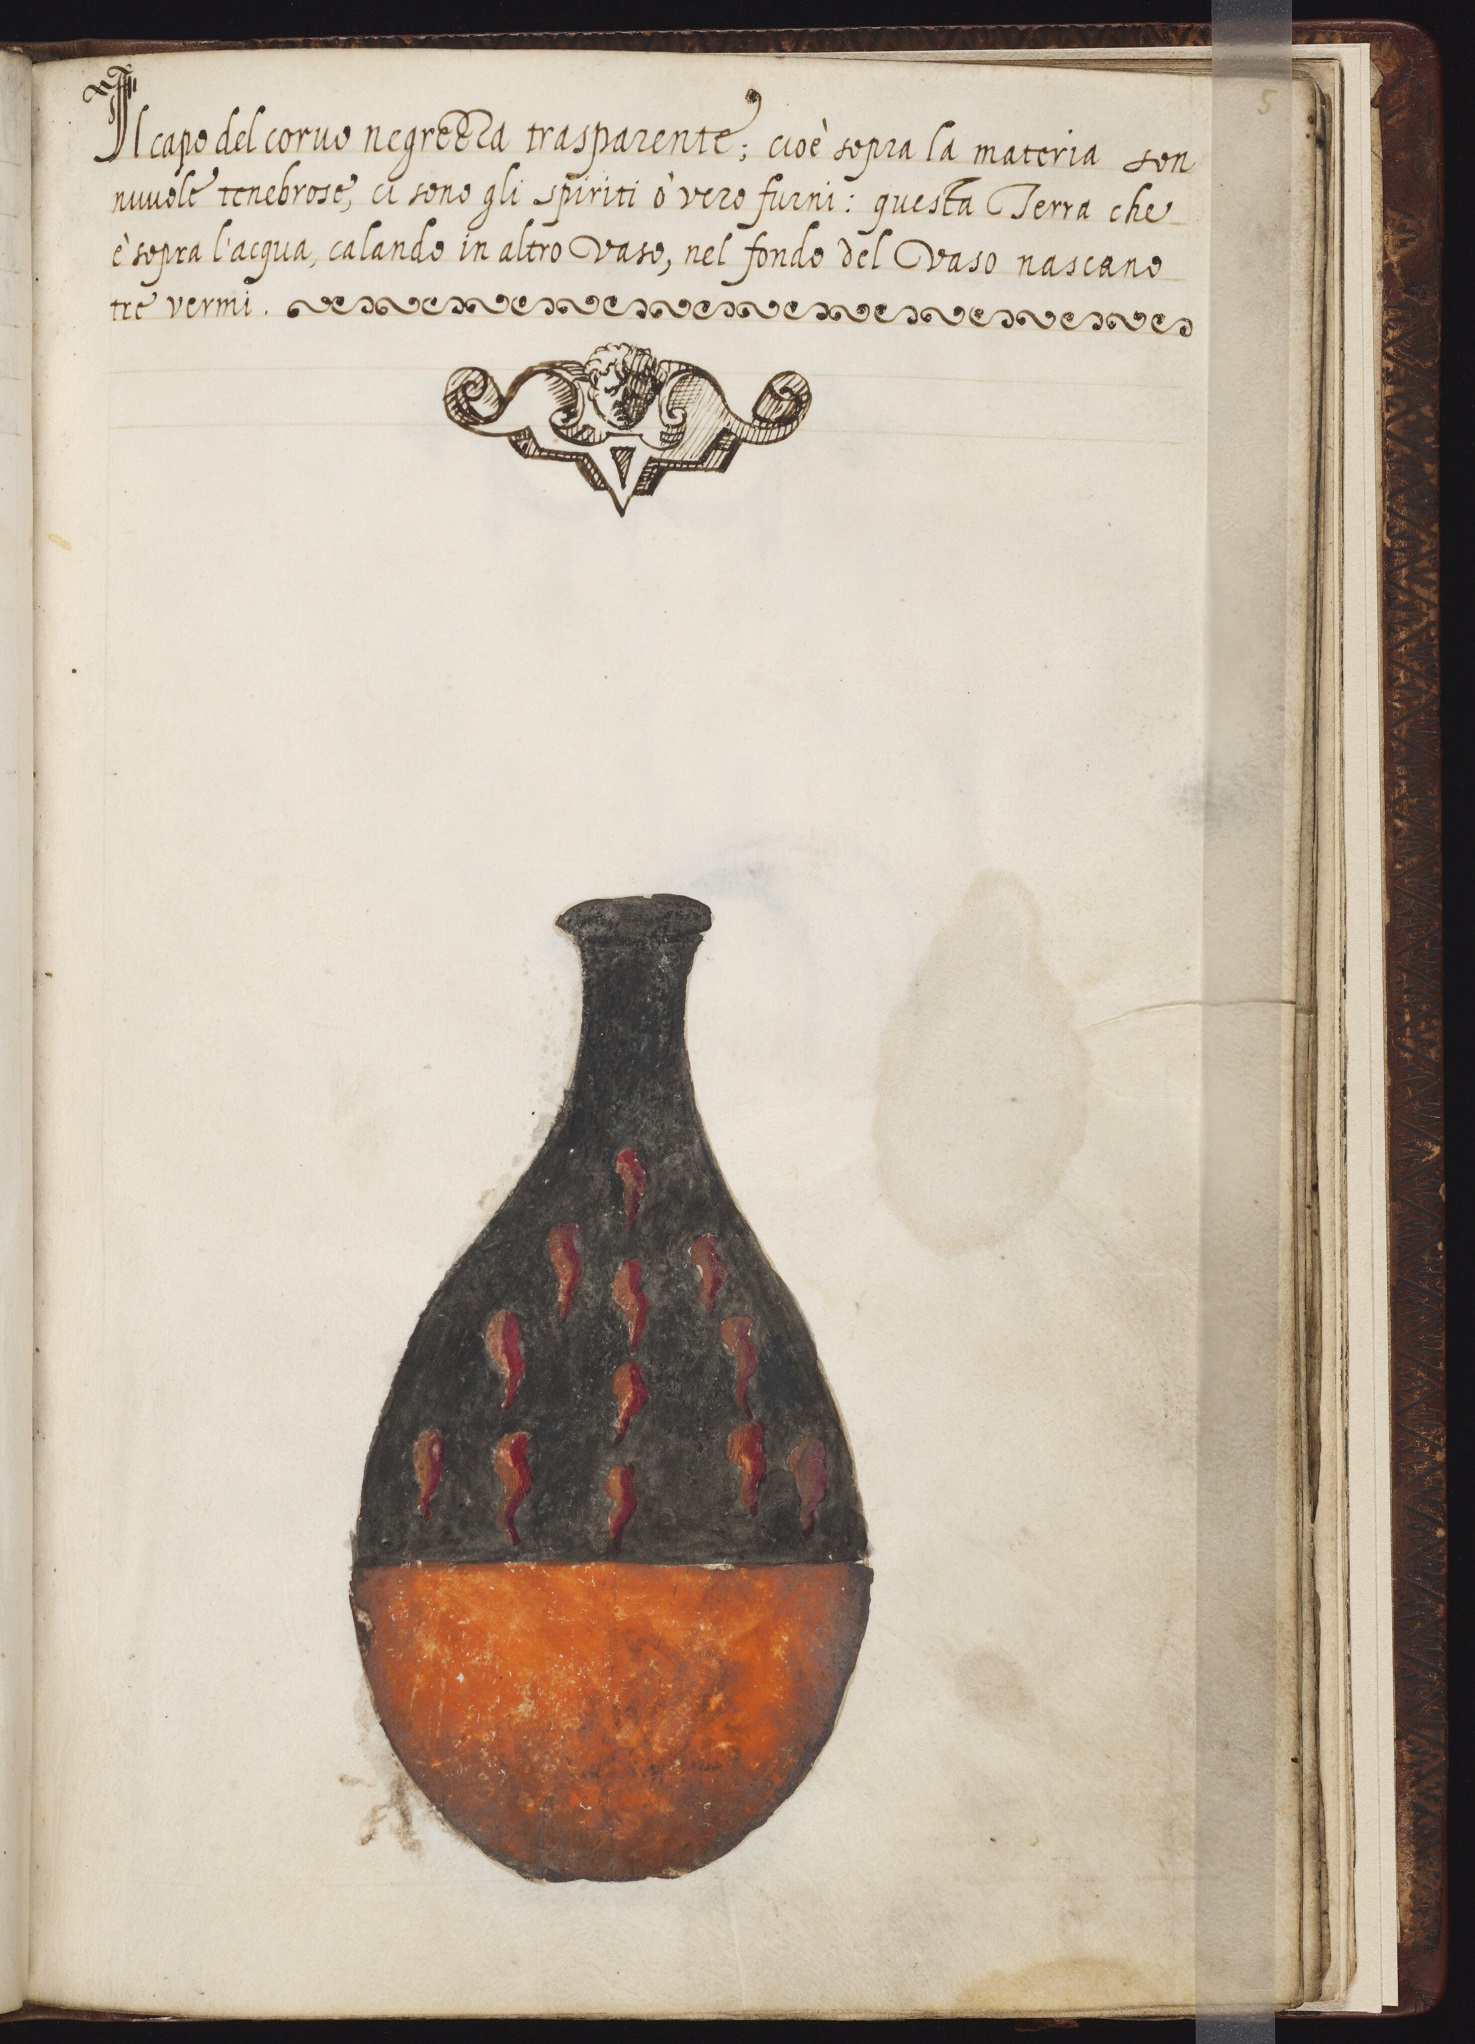 5
Il capo del coruo negrezza trasparente; cioè sopra la materia son
nuuole tenebrose, ci sono gli spiriti ò vero fumi: questa Terra che
è sopra l'acqua, calando in altro Vaso, nel fondo del Vaso nascano
tre vermi.